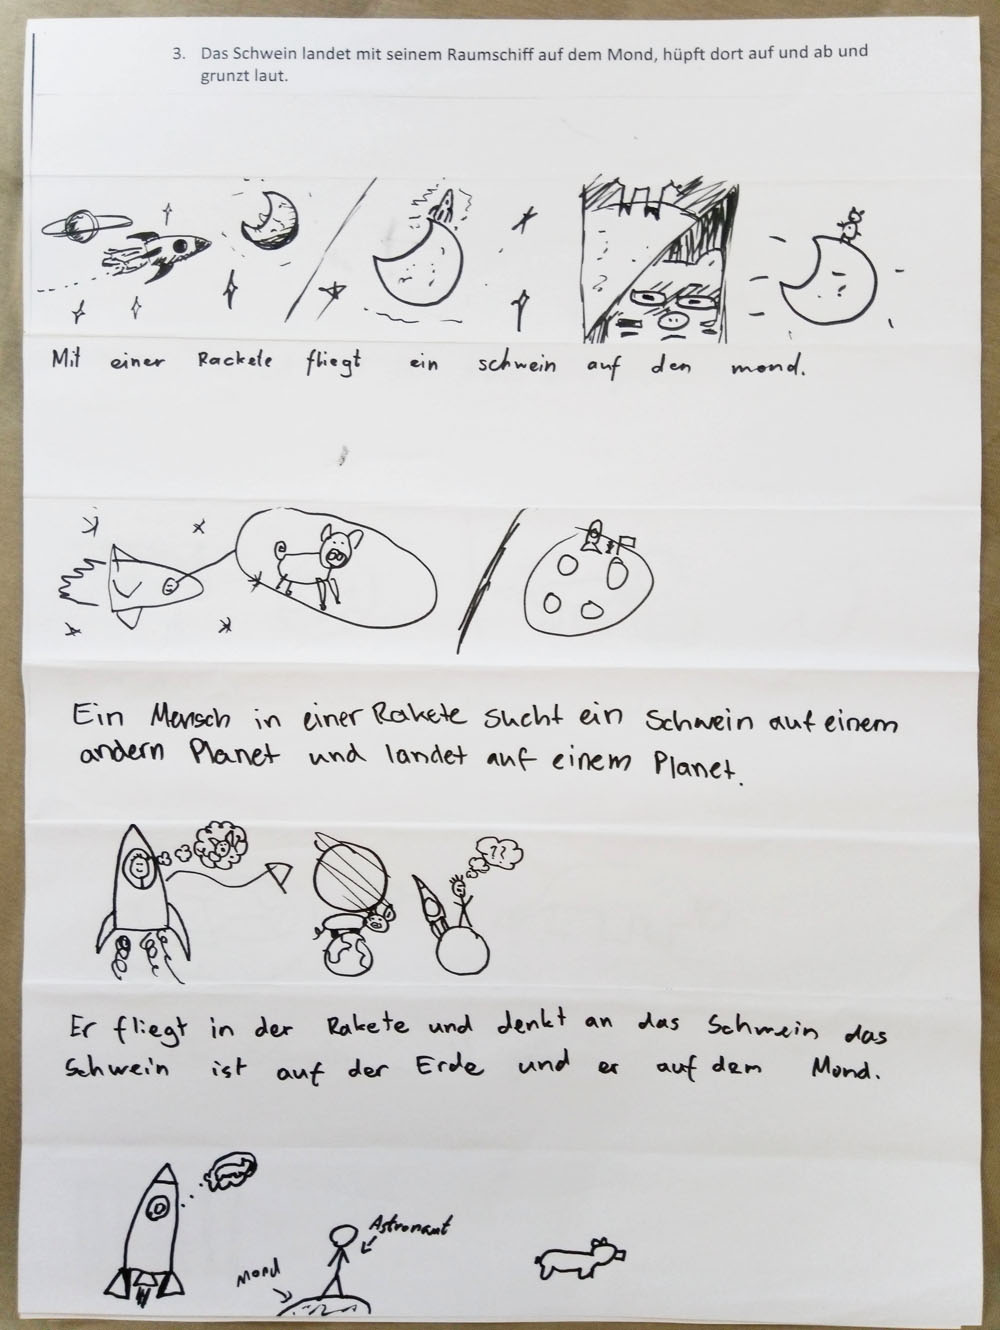 3. Das Schwein landet mit seinem Raumschiff auf dem Mond, hüpft dort auf und ab und
grunzt laut.
Mit einer Rackete fliegt ein schwein auf den mond.
Ein Mensch in einer Rakete sucht ein Schwein auf einem
andern Planet und landet auf einem Planet.
??
Er fliegt in der Rakete und denkt an das Schwein das
Schwein ist auf der Erde und er auf dem Mond.
Astronaut
Mond